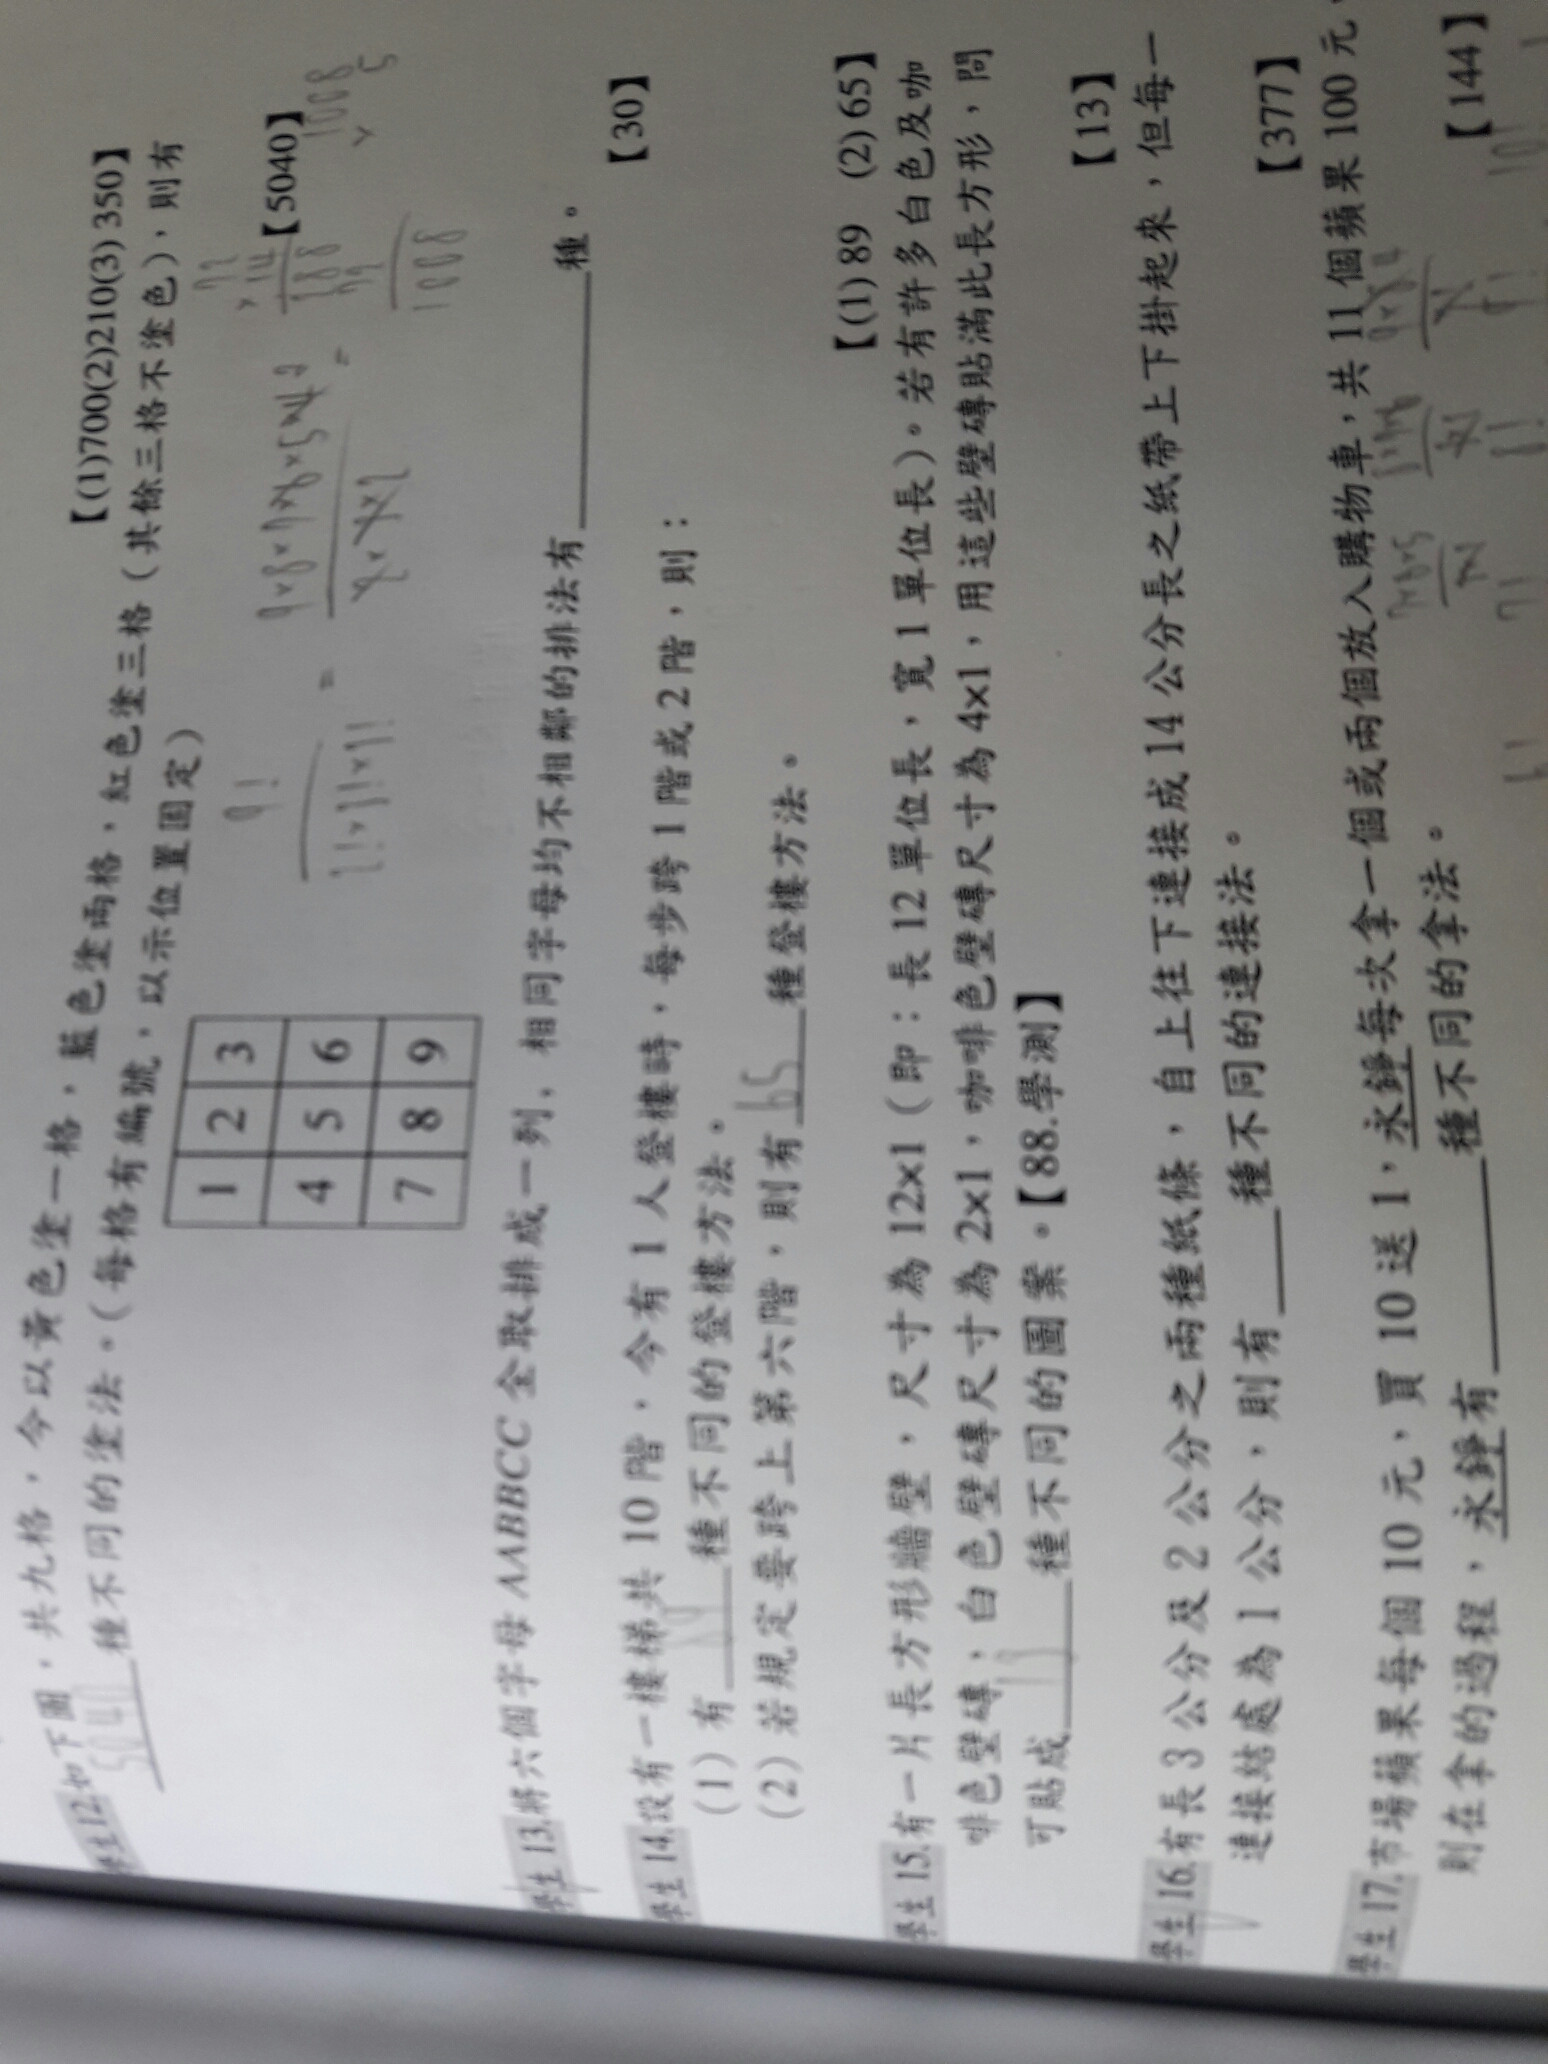 【(1)700(2)210(3)350】
學生12.如下圖，共九格，今以黃色塗一格，藍色塗兩格，紅色塗三格（其餘三格不塗色），則有
5040 種不同的塗法。（每格有編號，以示位置固定）
【5040】
1 2 3
4 5 6
7 8 9
9!
2!×3!×3!
=
1008
1008
× 5
學生13.將六個字母 AABBCC 全取排成一列，相同字母均不相鄰的排法有＿＿＿種。
【30】
學生14.設有一樓梯共 10 階，今有 1 人登樓時，每步跨 1 階或 2 階，則：
(1) 有 89 種不同的登樓方法。
(2) 若規定要跨上第六階，則有 65 種登樓方法。
【(1) 89 (2) 65】
學生15.有一片長方形牆壁，尺寸為 12×1（即：長 12 單位長，寬 1 單位長）。若有許多白色及咖
啡色壁磚，白色壁磚尺寸為 2×1，咖啡色壁磚尺寸為 4×1，用這些壁磚貼滿此長方形，問
可貼成 13 種不同的圖案。【88.學測】
【13】
學生16.有長 3 公分及 2 公分之兩種紙條，自上往下連接成 14 公分長之紙帶上下掛起來，但每一
連接結處為 1 公分，則有＿＿＿種不同的連接法。
【377】
學生17.市場蘋果每個 10 元，買 10 送 1，永錚每次拿一個或兩個放入購物車，共 11 個蘋果 100 元，
則在拿的過程，永錚有＿＿＿種不同的拿法。
【144】